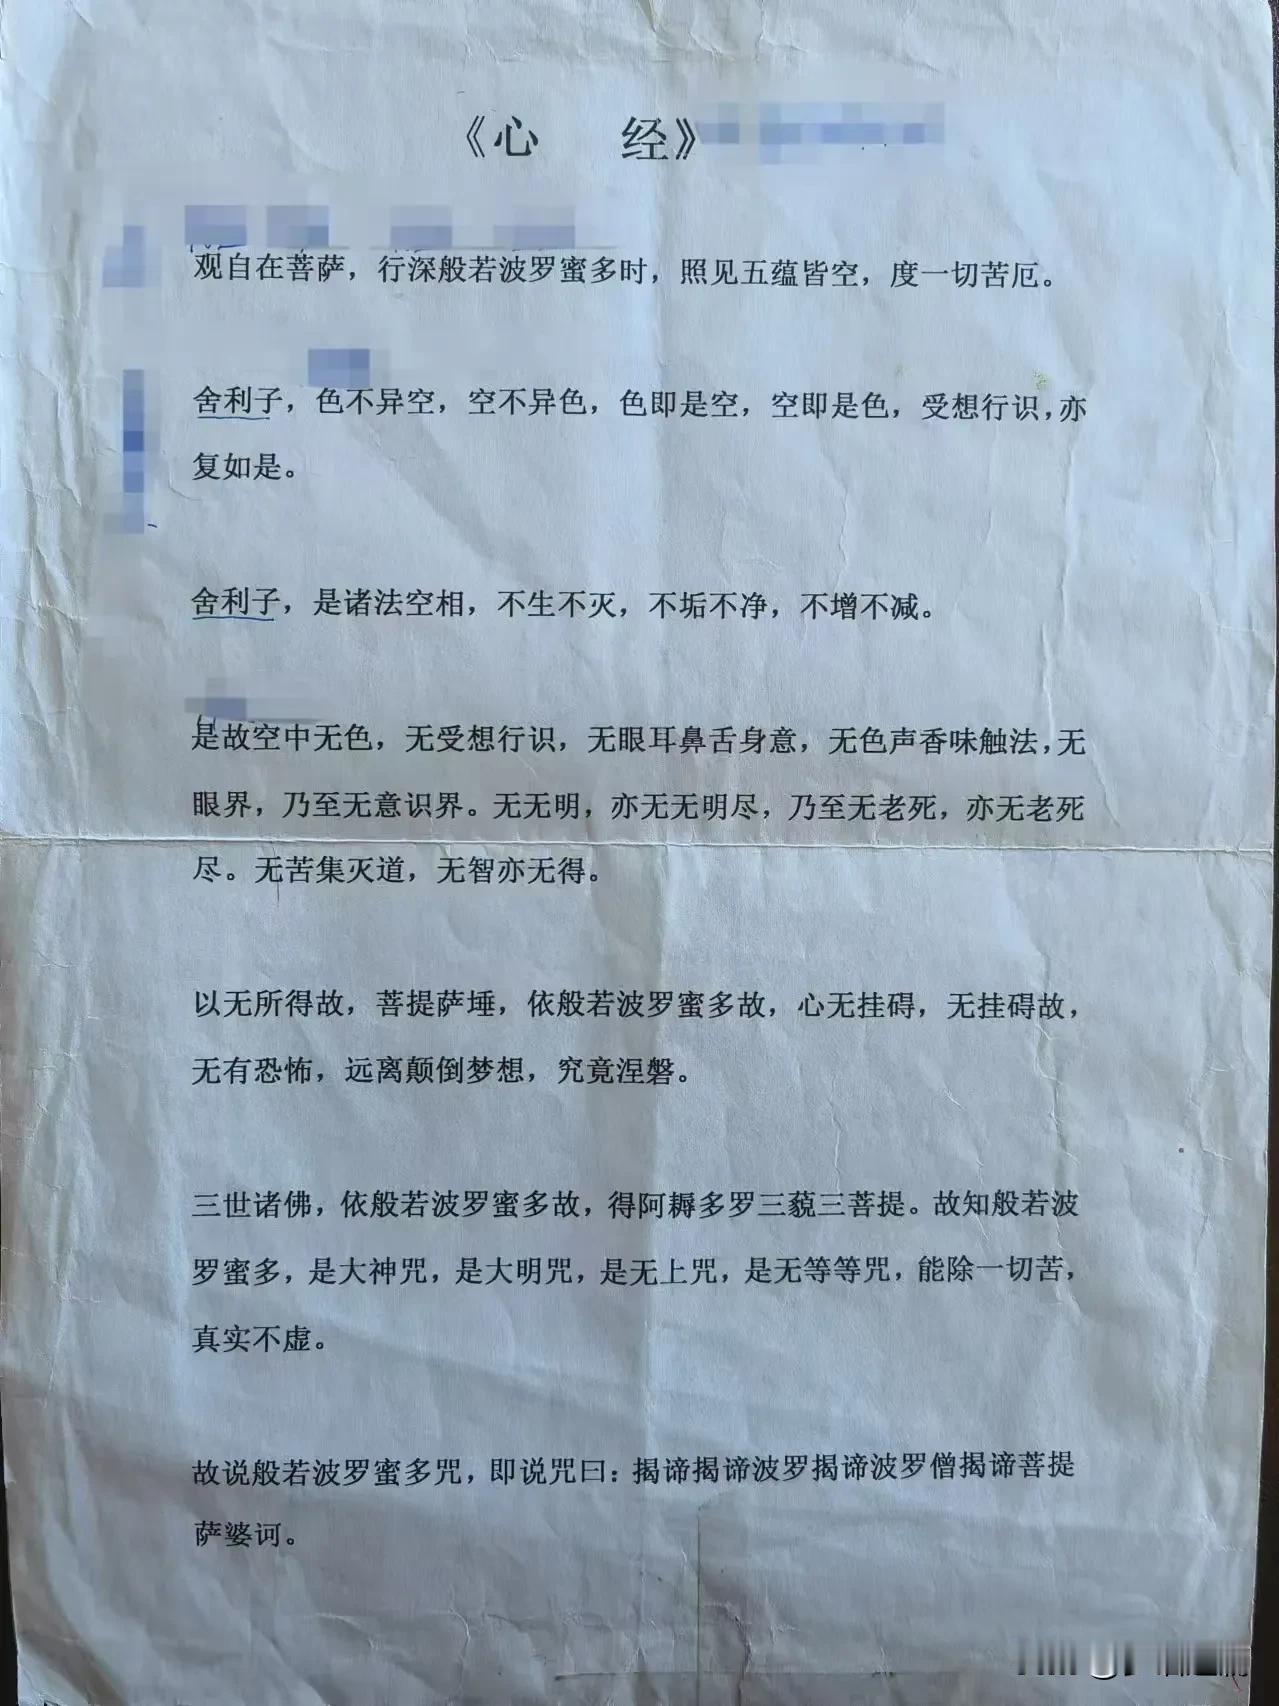 《心 经》
观自在菩萨，行深般若波罗蜜多时，照见五蕴皆空，度一切苦厄。
舍利子，色不异空，空不异色，色即是空，空即是色，受想行识，亦
复如是。
舍利子，是诸法空相，不生不灭，不垢不净，不增不减。
是故空中无色，无受想行识，无眼耳鼻舌身意，无色声香味触法，无
眼界，乃至无意识界。无无明，亦无无明尽，乃至无老死，亦无老死
尽。无苦集灭道，无智亦无得。
以无所得故，菩提萨埵，依般若波罗蜜多故，心无挂碍，无挂碍故，
无有恐怖，远离颠倒梦想，究竟涅磐。
三世诸佛，依般若波罗蜜多故，得阿耨多罗三藐三菩提。故知般若波
罗蜜多，是大神咒，是大明咒，是无上咒，是无等等咒，能除一切苦，
真实不虚。
故说般若波罗蜜多咒，即说咒曰：揭谛揭谛波罗揭谛波罗僧揭谛菩提
萨婆诃。